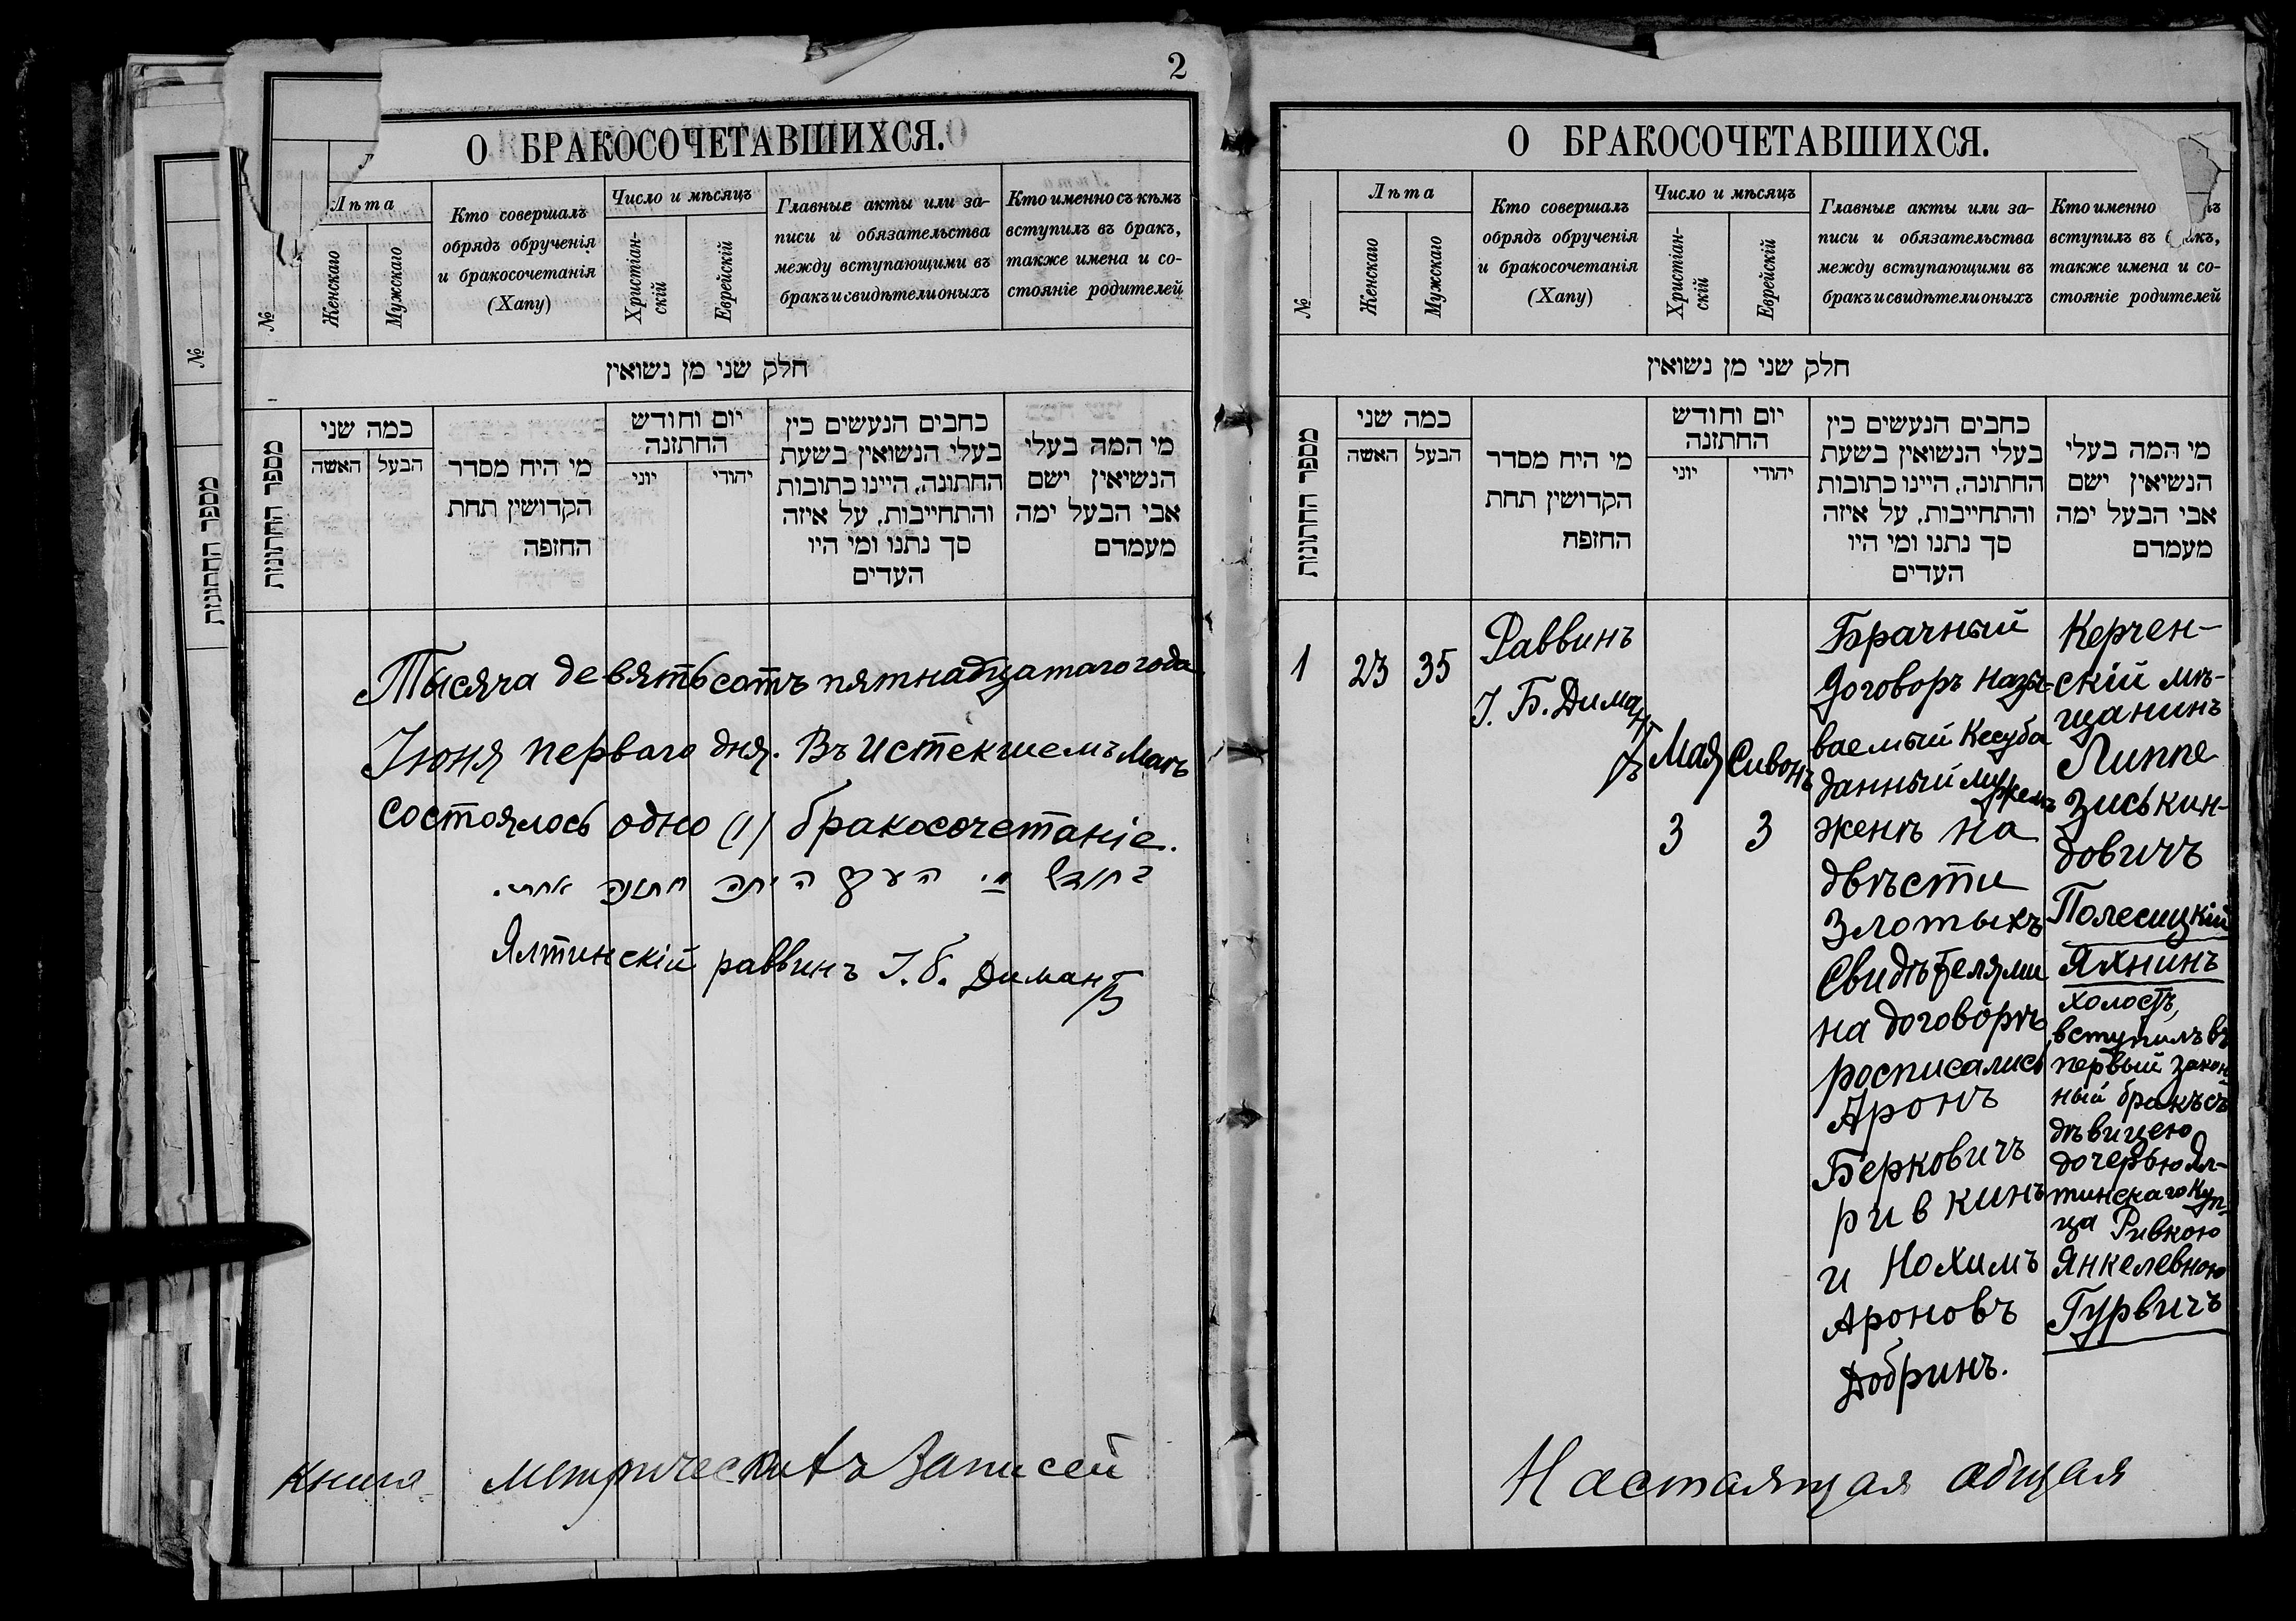 2
О БРАКОСОЧЕТАВШИХСЯ.
№
Лѣта
Женскаго
Мужскаго
Кто совершалъ
обрядъ обрученія
и бракосочетанія
(Хапу)
Число и мѣсяцъ
Христіан-
скій
Еврейскій
Главные акты или за-
писи и обязательства
между вступающими въ
бракъ и свидѣтели оныхъ
Кто именно съ кѣмъ
вступилъ въ бракъ,
также имена и со-
стояніе родителей
חלק שני מן נשואין
מספר החתונות
כמה שני
האשה
הבעל
מי היח מסדר
הקדושין תחת
החופה
יום וחודש
החתונה
יוני
יהודי
כחבים הנעשים כין
בעלי הנשואין בשעת
החתונה, היינו כתובות
והתחייבות, על איזה
סך נתנו ומי היו
העדים
מי המה בעלי
הנשיאין ישם
אבי הבעל ימה
מעמדם
Тысяча девятьсотъ пятнадцатаго года
Іюня перваго дня. Въ истекшемъ Маѣ
состоялось одно (1) бракосочетаніе.
Ялтинскій раввинъ І. Б. Димантъ
Книга метрическихъ записей
№
מספר החתונות
О БРАКОСОЧЕТАВШИХСЯ.
№
Лѣта
Женскаго
Мужскаго
Кто совершалъ
обрядъ обрученія
и бракосочетанія
(Хапу)
Число и мѣсяцъ
Христіан-
скій
Еврейскій
Главные акты или за-
писи и обязательства
между вступающими въ
бракъ и свидѣтели оныхъ
Кто именно
вступилъ въ
также имена и со-
стояніе родителей
חלק שני מן נשואין
מספר החתונות
כמה שני
האשה
הבעל
מי היח מסדר
הקדושין תחת
החזפח
יום וחודש
החתזנה
יוני
יהודי
כחבים הנעשים כין
בעלי הנשואין בשעת
החתונה, היינו כתובות
והתחייבות, על איזה
סך נתנו ומי היו
העדים
מי המה בעלי
הנשיאין ישם
אבי הבעל ימה
מעמדם
1
23
35
Раввинъ
І. Б. Димантъ
Мая
3
Сивонъ
3
Брачный
договоръ назы-
ваемый Кесуба
данный мужемъ
женѣ на
двѣсти
злотыхъ
Свидѣтелями
на договорѣ
росписались
Аронъ
Берковичъ
Ривкинъ
и Нохимъ
Ароновъ
Добринъ.
Керчен-
скій мѣ-
щанинъ
Липпе
Зиськин-
довичъ
Полесицкій
Яхнинъ
холостъ,
вступилъ въ
первый закон-
ный бракъ съ
дѣвицею
дочерью Ял-
тинскаго куп-
ца Ривкою
Янкелевною
Гурвичъ
Настоящая общая